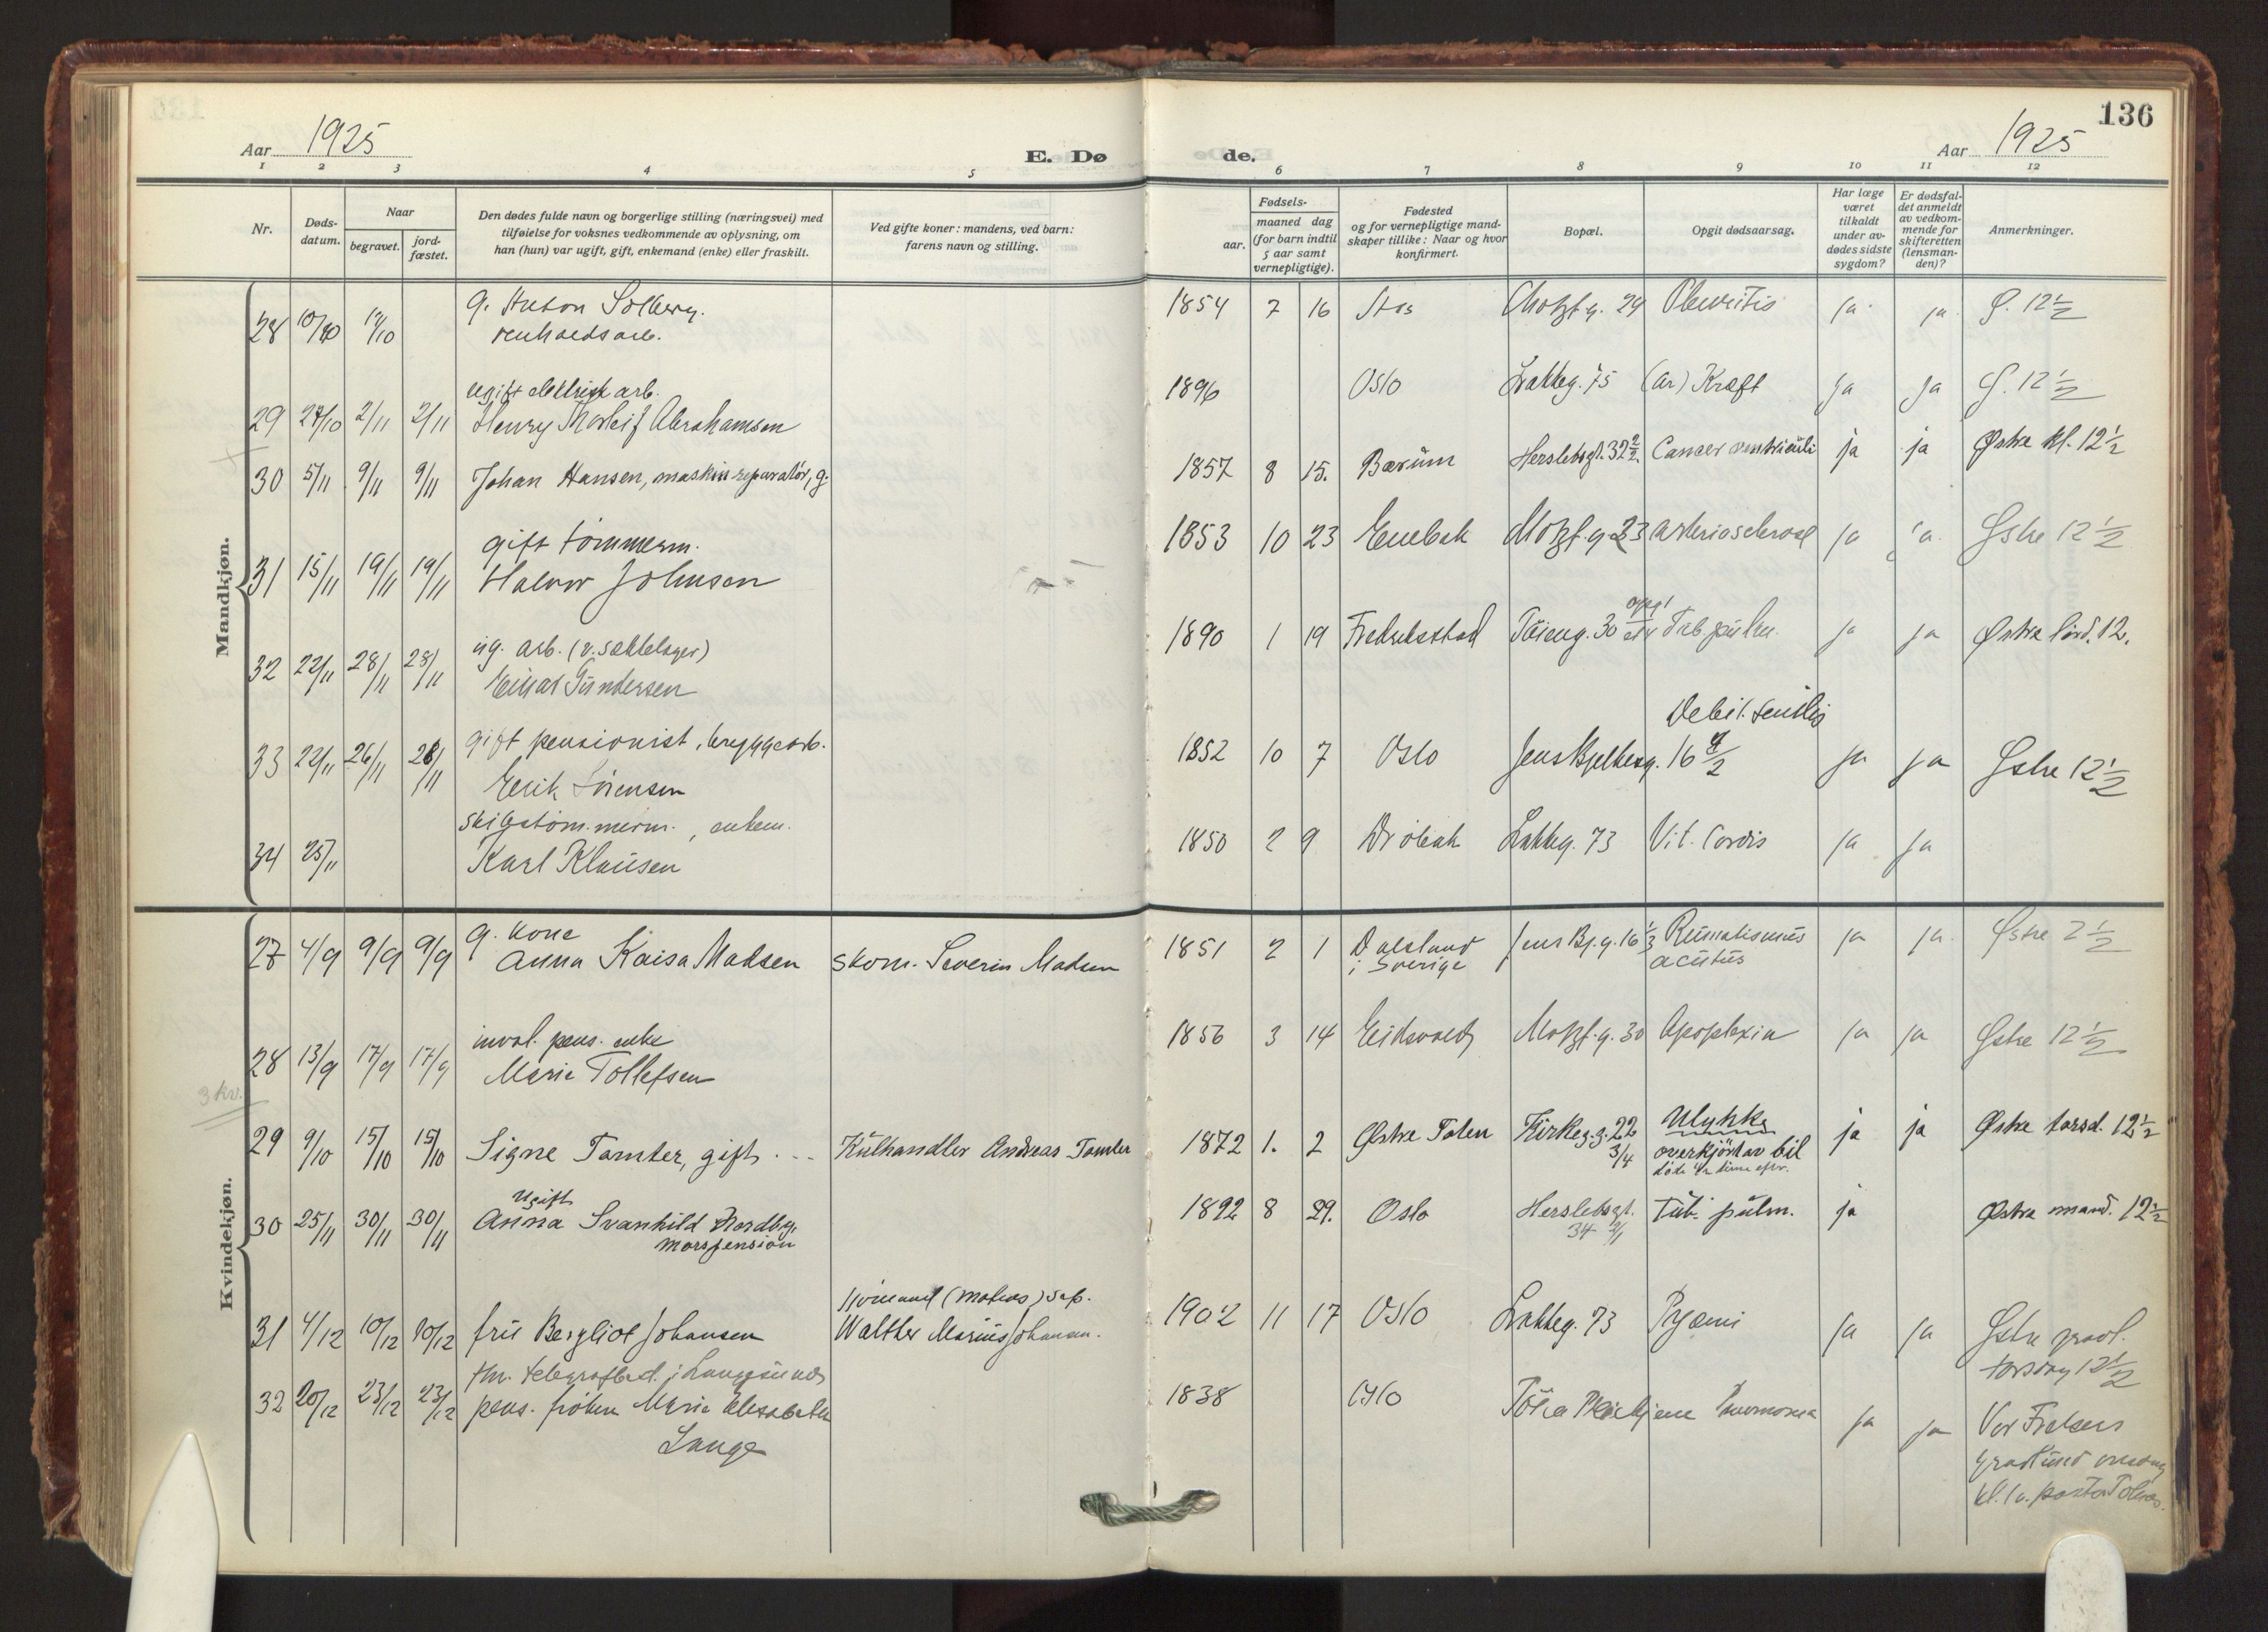 136
Aar 1925
E. Dø
de.
Aar 1925
1 2 3 4 5 6 7 8 9 10 11 12
Nr.
Døds-
datum.
Naar
begravet.
jord-
fæstet.
Den dødes fulde navn og borgerlige stilling (næringsvei) med
tilføielse for voksnes vedkommende av oplysning, om
han (hun) var ugift, gift, enkemand (enke) eller fraskilt.
Ved gifte koner: mandens, ved barn:
farens navn og stilling.
Fødsels-
aar.
maaned dag
(for barn indtil
5 aar samt
vernepligtige).
Fødested
og for vernepligtige mand-
skaper tillike: Naar og hvor
konfirmert.
Bopæl.
Opgit dødsaarsag.
Har læge
været
tilkaldt
under av-
dødes sidste
sygdom?
Er dødsfal-
det anmeldt
av vedkom-
mende for
skifteretten
(lensman-
den)?
Anmerkninger.
Mandkjøn.
g. Anton Solberg.
28 10/10 renholdsarb. 1854 7 16 Motzf.g. 29 ja ja Ø. 12 1/2
ugift elektrisk arb.
29 27/10 2/11 2/11 Henry Thorleif Abrahamsen 1896 Oslo Lakkeg. 75 Kræft ja ja Ø. 12 1/2
30 5/11 9/11 9/11 Johan Hansen, maskinreparatör, g. 1857 8 15. Bærum Herslebsgt. 32 2/2. Cancer ventriculi ja ja Østre kl. 12 1/2
gift tømmerm.
31 15/11 19/11 19/11 Halvor Johnsen 1853 10 23 Enebak Motzf.g. 23 arteriosclerose ja ja Østre 12 1/2
ug. arb. (v. sækkelager)
32 22/11 28/11 28/11 Einar Gundersen 1890 1 19 Fredrikstad Tøieng. 30 Tub. pulm. ja ja Østre lørd. 12.
gift pensionist, bryggearb. Debil. senilis
33 22/11 26/11 Erik Sørensen 1852 10 7 Oslo Jens Bjelkesg. 16 ja ja Østre 12 1/2
skibstøm.merm., enkem.
34 25/11 Karl Klausen 1850 2 9 Drøbak Lakkeg. 73 Vit. cordis ja ja
Kvindekjøn.
g. kone
27 4/9 9/9 9/9 Anna Kaisa Madsen skom. Severin Madsen 1851 2 1 Dalsland i Sverige Jens Bj.g. 16 1/3 Rumatismus acutus ja ja Østre 2 1/2
inval. pens. enke
28 13/9 17/9 17/9 Marie Tollefsen 1856 3 14 Eidsvold Motzf.g. 30 Apoplexia ja ja Østre 12 1/2
3 kv.
29 9/10 15/10 15/10 Signe Tamter, gift Kulhandler Andreas Tamter 1872 1. 2 Østre Toten Kirkeg.g. 22 3/4 Ulykke
overkjört av bil ja ja Østre torsd. 12 1/2
Ugift
30 25/11 30/11 30/11 Anna Svanhild Nordbg.
morspension 1892 8 29. Oslo Herslebsgt. 34 Tub. pulm. ja Østre mand. 12 1/2
31 4/12 10/12 10/12 fru Bergliot Johansen
Walther Marius Johansen. 1902 11 17 Oslo Lakkeg. 73 Pyæmi ja ja Østre gravl.
torsdag 12 1/2
fhv. telegrafbest. i Langesund
32 20/12 23/12 23/12 pens. frøken Marie Elisabeth
Lange 1838 Oslo Pleiehjem Pneumonia ja ja Vor Frelsers
gravlund onsdag